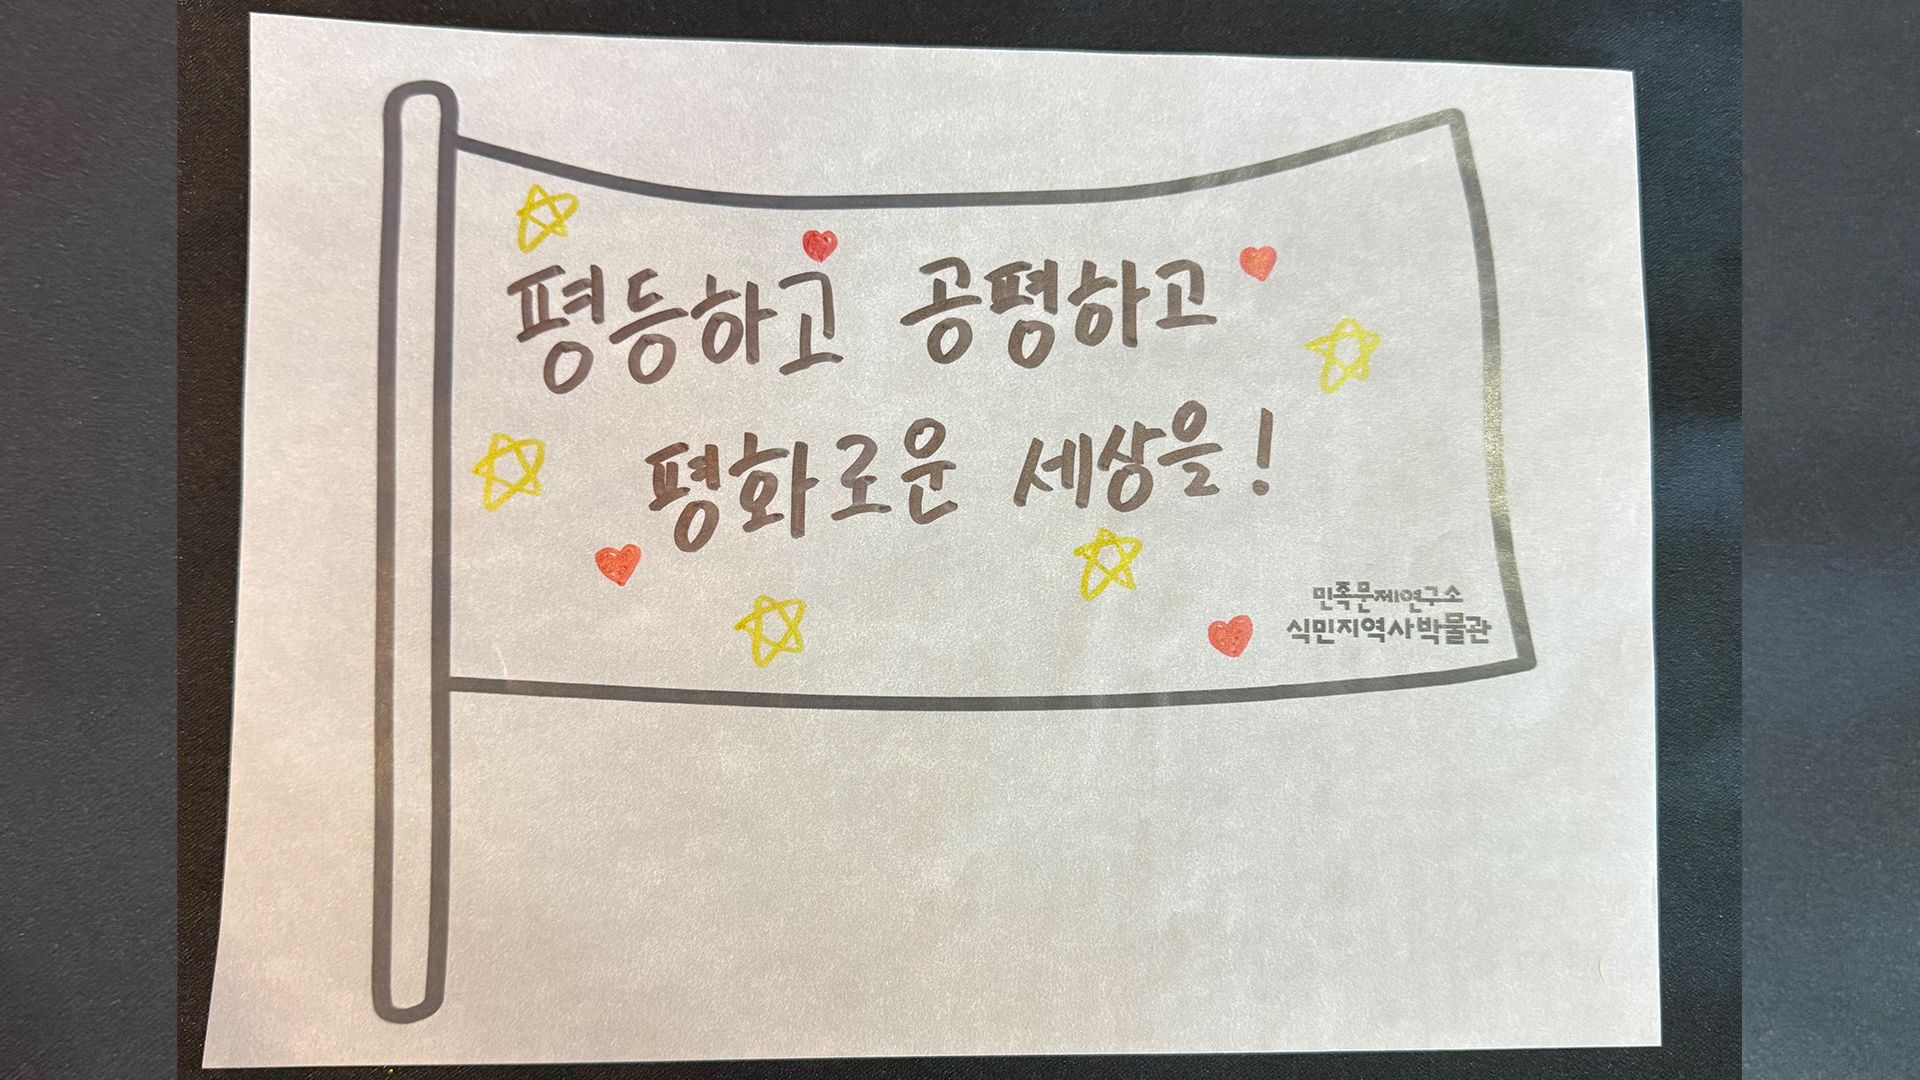 평등하고 공평하고
평화로운 세상을!
민족문제연구소
식민지역사박물관